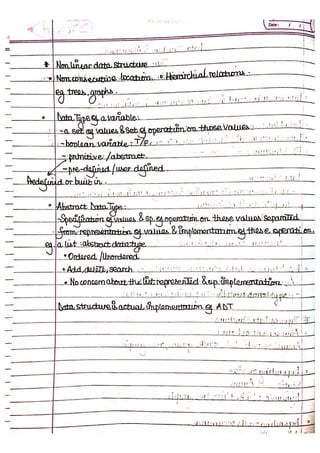 Date: / /
* Non linear data structure
• Non consecutive location. • Hierarchial relations.
eg. trees, graphs.
• Data Type of a variable:
- a set of values & set of operation on those values.
- boolean variable: T/F
- primitive / abstract.
- pre-defined / user defined
Predefined or built in.
• Abstract Data Type:
- Specification of values & sp. of operation on these values separated
from representation of values & implementation of these operation.
eg. a list: abstract datatype
• Ordered / Unordered
• Add, delete, search
• No concern about the list represented & op. implementation.
Data structure is actual implementation of ADT